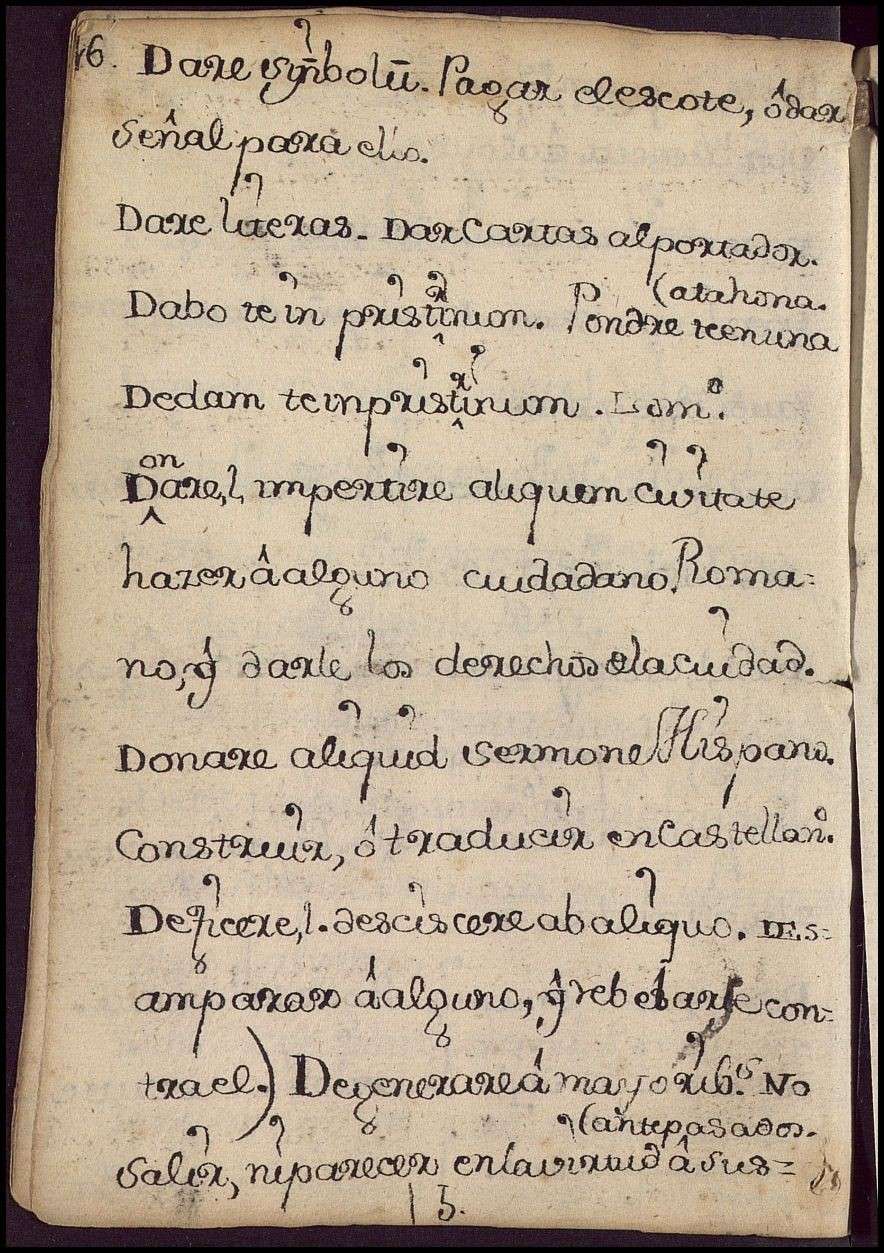 46. Dare symbolū. Pagar el escote, ô dar
señal para ello.
Dare literas. Dar Cartas al portador.
(atahona.
Dabo te in pristrinum. Pondre te en una
Dedam te in pristrinum. Idem.º
Donare, l, impertire aliquem civitate
hazer â alguno ciudadano Roma=
no, ŷ darle los derechos de la ciudad.
Donare aliquid sermone Hispano.
Construir, ô traducir en Castellanº.
Deficere, l. desciscere ab aliquo. Des=
amparar â alguno, ŷ rebelarse con=
tra el.) Degenerare â mayorib.us No
(antepasados.
Salir, ni parecer en la virtud â sus=
15.